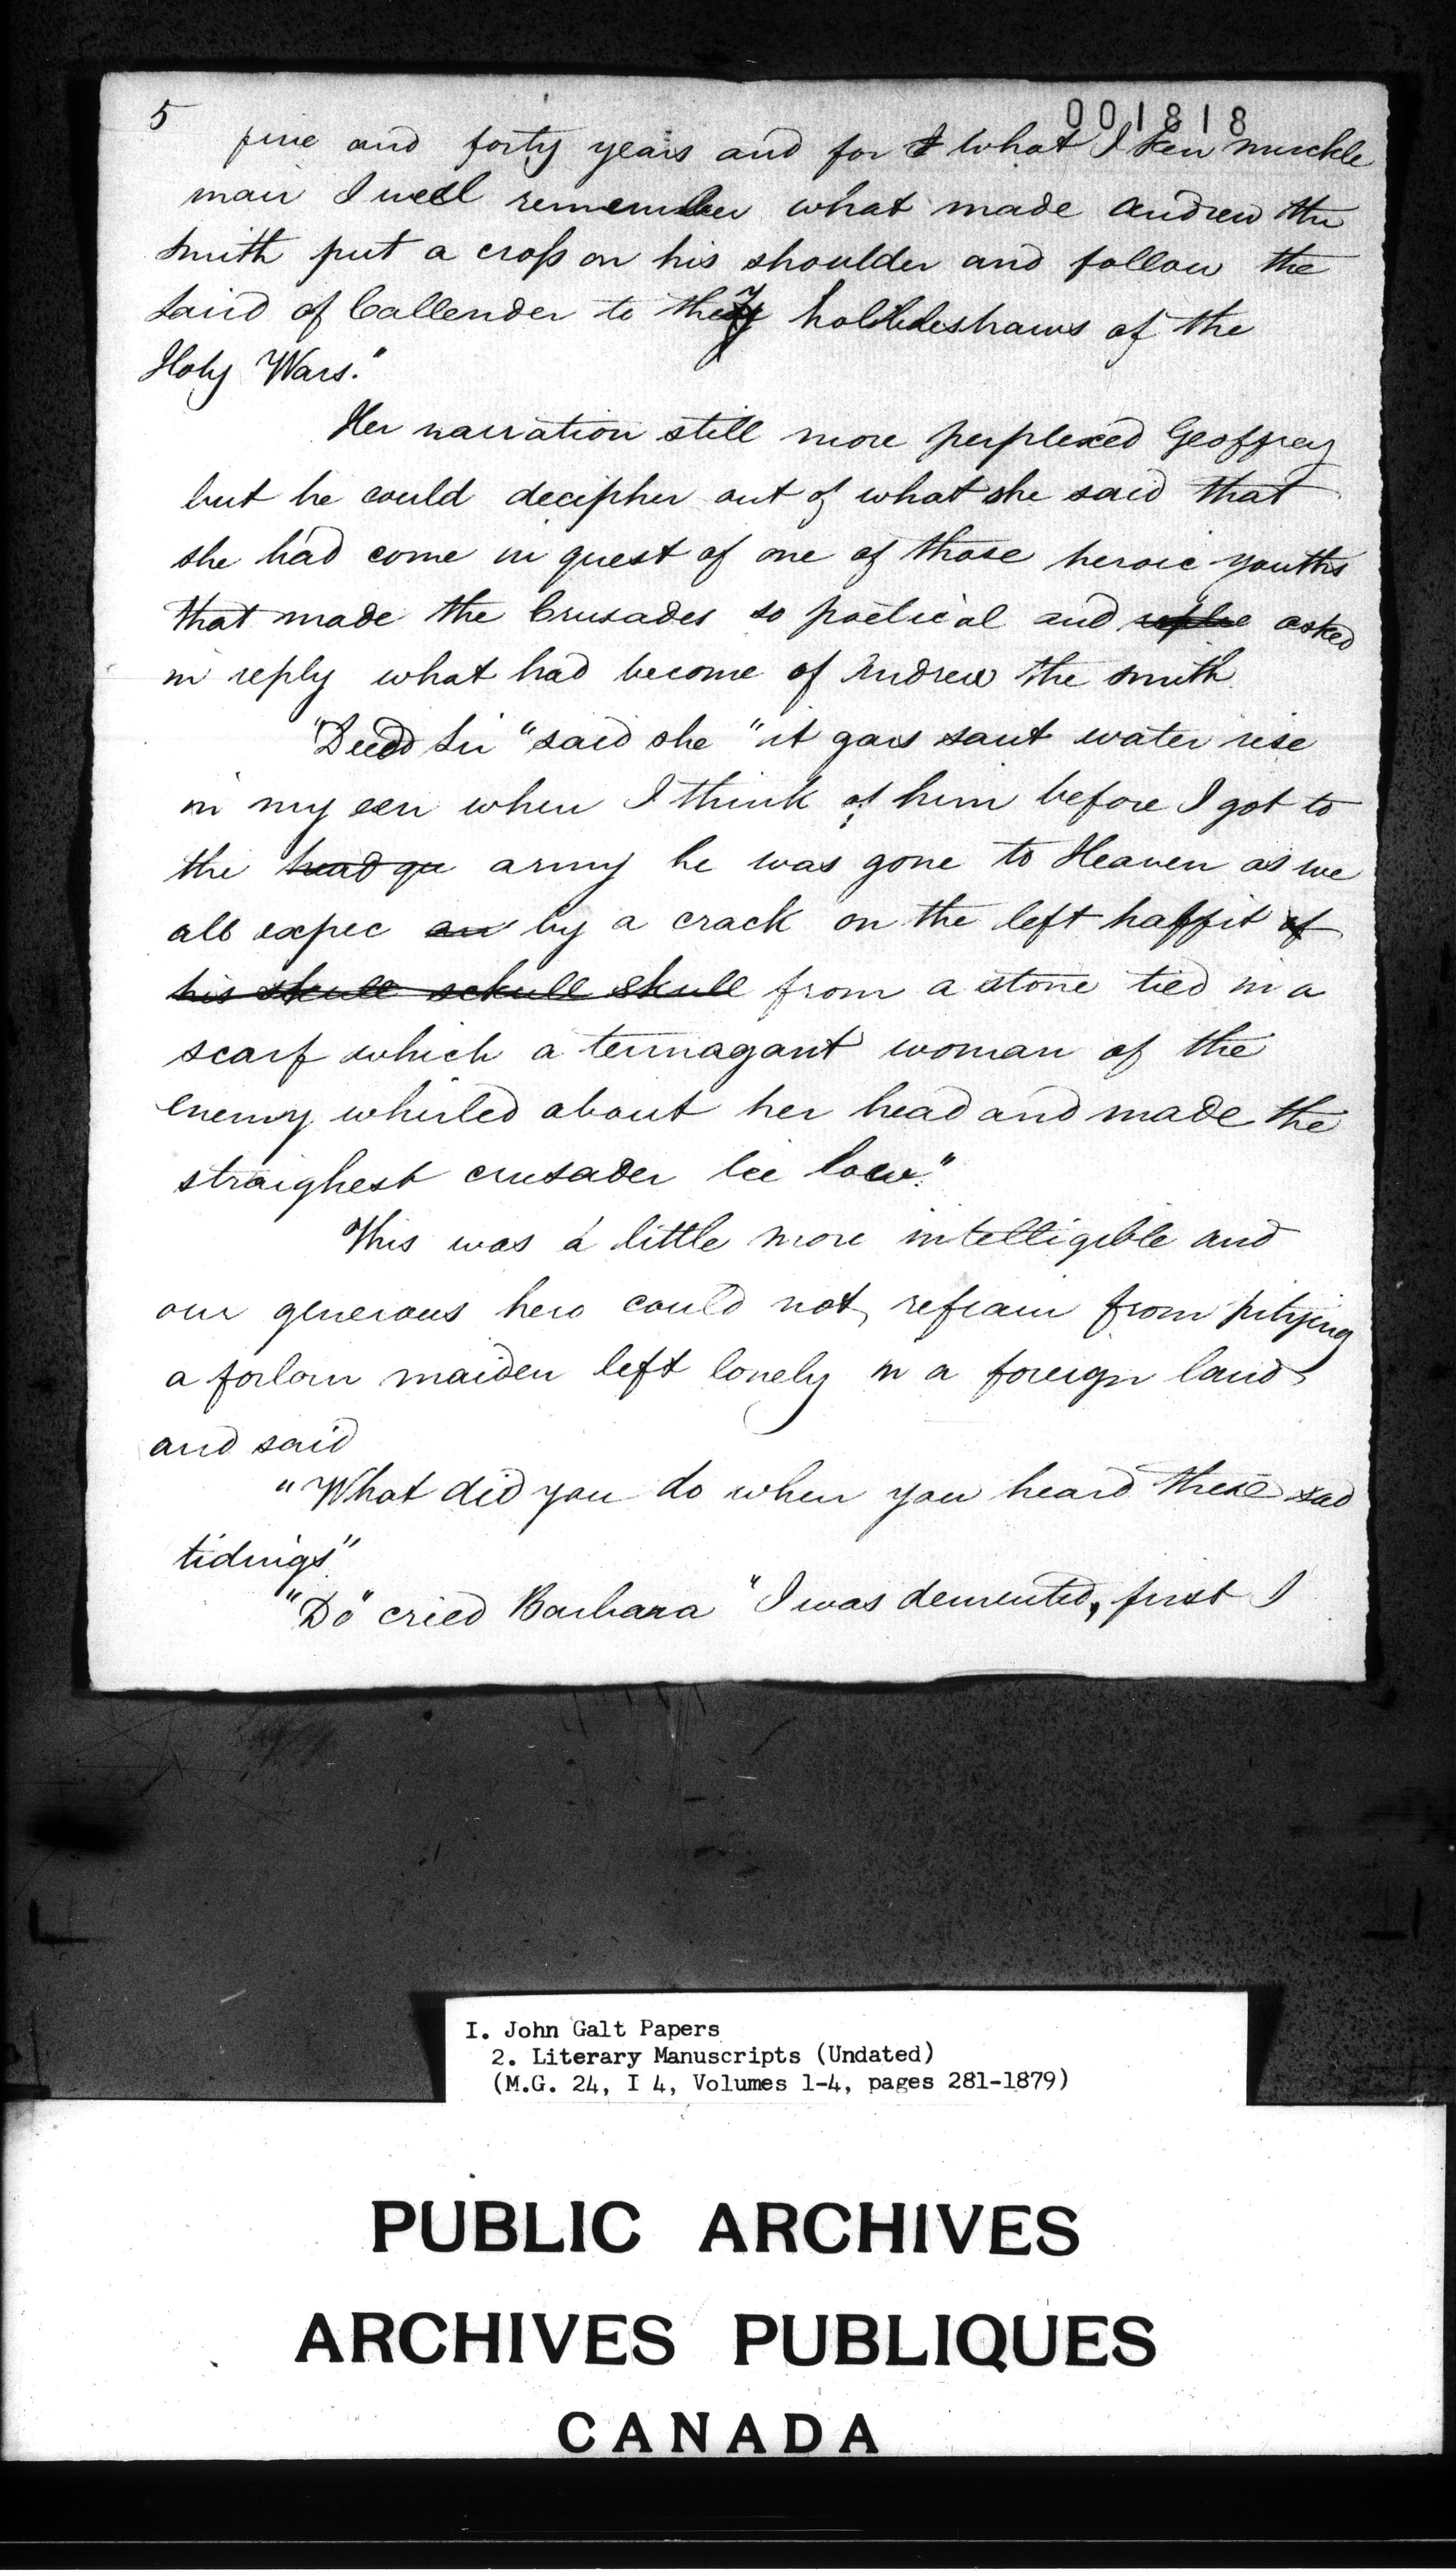 5
001818
five and forty years and for what I ken muckle
mair I well remember what made Andrew the
Smith put a cross on his shoulder and follow the
Laird of Callender to the of the
Holy Wars."
Her narration still more perplexed Geoffrey
but he could decipher out of what she said that
she had come in quest of one of those heroic youths
that made the Crusades so poetical and asked
in reply what had become of Andrew the smith
"Deed Sir" said she "it gars saut water rise
in my een when I think of him before I got to
the head qu army he was gone to Heaven as we
all expec an by a crack on the left haffit of
his skull sckull skull from a stone tied in a
scarf which a termagant woman of the
enemy whirled about her head and made the
straighest crusader lie low."
This was a little more intelligible and
our generous hero could not refrain from pitying
a forlorn maiden left lonely in a foreign land
and said
"What did you do when you heard these sad
tidings"
"Do" cried Barbara "I was demented, first I
I. John Galt Papers
2. Literary Manuscripts (Undated)
(M.G. 24, I 4, Volumes 1-4, pages 281-1879)
PUBLIC ARCHIVES
ARCHIVES PUBLIQUES
CANADA